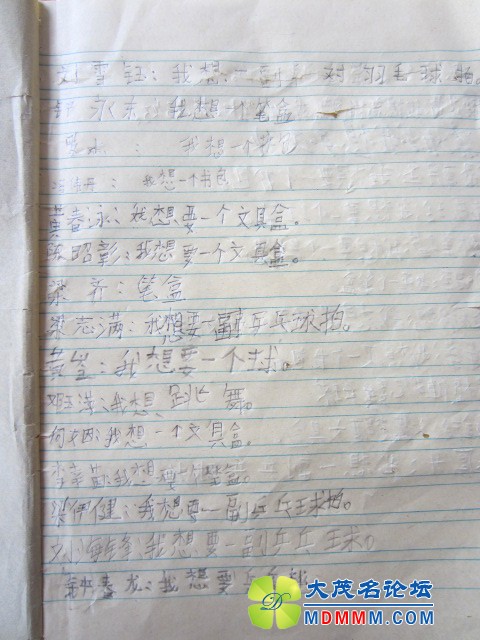 刘雪钰：我想一副 对羽毛球拍。
永东：我想一个笔盒
我想一个书包
：我想一个书包
黄春泳：我想要一个文具盒。
陈昭彰：我想要一个文具盒。
梁齐：笔盒
梁志满：我想要一副乒乓球拍。
黄莹：我想要一个球。
我想 跳 舞。
我想一个文具盒。
我想要一个笔盒。
梁伊健：我想要一副乒乓球拍。
刘海锋：我想要一副乒乓球。
钟春龙：我想要乒乓球
大茂名论坛
MDMMM.COM